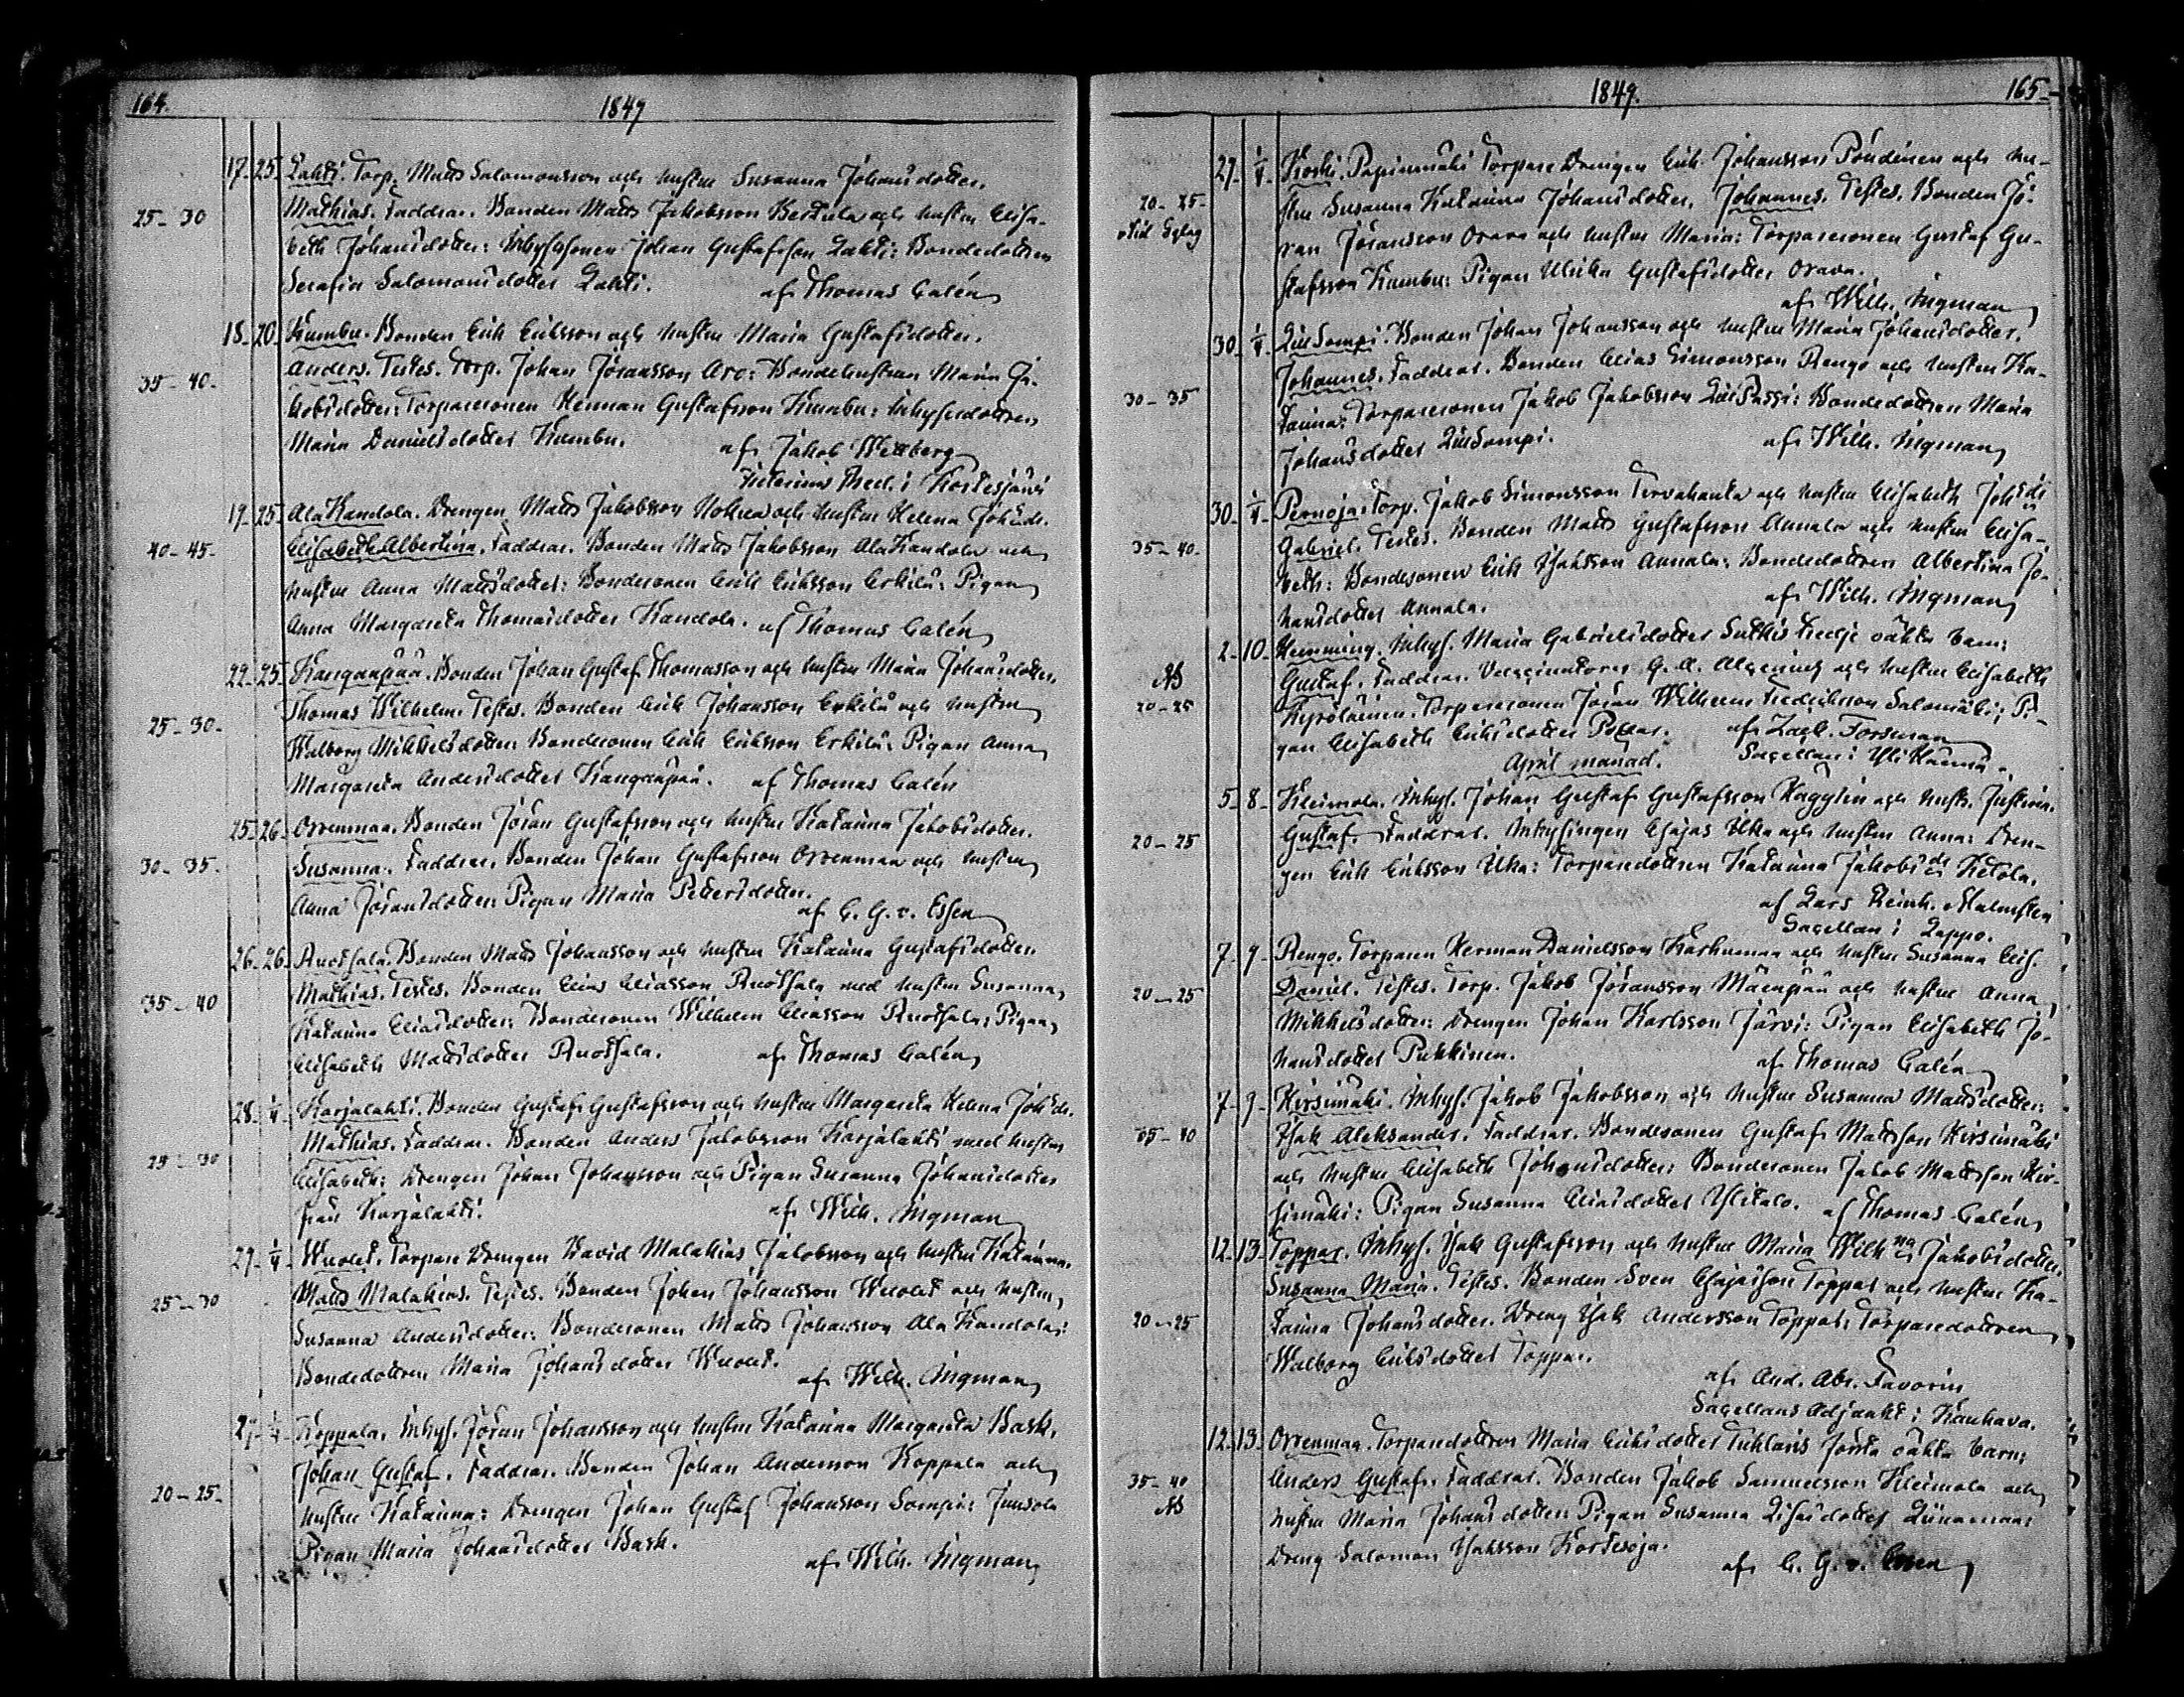 164.
1849
17. 25. Lahti. Torp. Matts Salomonsson och hustru Susanna Johansdotter.
25-30 Mathias. Faddrar. Bonden Matts Jakobsson Bertula och hustru Elisa-
beth Johansdotter: Inhysessonen Johan Gustafsson Lahti: Bondedottren
Serafia Salomonsdotter Lahti. af Thomas Calén
18. 20. Kumbu. Bonden Erik Eriksson och hustru Maria Gustafsdotter.
35-40. Anders. Testes. Torp. Johan Jöransson Aro: Bondehustrun Maria Ja-
kobsdotter: Torparesonen Herman Gustafsson Kumbu: Inhysesdottren
Maria Danielsdotter Kumbu. af Jakob Wettberg
Vicarius Pred. i Kortesjärvi
19. 25. Ala Kandola. Drengen Matts Jakobsson och hustru Helena Joh:dr.
40-45. Elisabeth Albertina. Faddrar. Bonden Matts Jakobsson Ala Kandola och
hustru Anna Mattsdotter: Bondesonen Erik Eriksson Erkilä: Pigan
Anna Margareta Thomasdotter Kandola. af Thomas Calén
22. 25. Kangaspää. Bonden Johan Gustaf Thomasson och hustru Maria Johansdotter.
25-30. Thomas Wilhelm. Testes. Bonden Erik Johansson Erkilä och hustru
Walborg Mikkelsdotter: Bondesonen Erik Eriksson Erkilä: Pigan Anna
Margareta Andersdotter Kangaspää. af Thomas Calén
25. 26. Orrenmaa. Bonden Jöran Gustafsson och hustru Katarina Jakobsdotter.
30-35. Susanna. Faddrar. Bonden Johan Gustafsson Orrenmaa och hustru
Anna Jöransdotter: Pigan Maria Pettersdotter.
af C. G. v. Essen
26. 26. Ruotsala. Bonden Matts Johansson och hustru Katarina Gustafsdotter.
35-40 Mathias. Testes. Bonden Elias Eliasson Ruotsala med hustru Susanna
Katarina Eliasdotter: Bondesonen Wilhelm Eliasson Ruotsala: Pigan
Elisabeth Mattsdotter Ruotsala. af Thomas Calén
28. 1/4. Karjalahti. Bonden Gustaf Gustafsson och hustru Margareta Helena Joh:dr.
25-30 Mathias. Faddrar. Bonden Anders Jakobsson Karjalahti med hustru
Elisabeth: Drengen Johan Johansson och Pigan Susanna Johansdotter
från Karjalahti. af Wilh. Ingman
29. 1/4. Wuolet. Torpare Drengen David Malakias Jakobsson och hustru Katarina.
25-30 Matts Malakias. Testes. Bonden Johan Johansson Wuolet och hustru
Susanna Andersdotter: Bondesonen Matts Johansson Ala Kandola:
Bondedottren Maria Johansdotter Wuolet.
af Wilh. Ingman
29. 1/4. Koppala. Inhys. Jöran Johansson och hustru Katarina Margareta Bask.
20-25. Johan Gustaf. Faddrar. Bonden Johan Andersson Koppala och
hustru Katarina: Drengen Johan Gustaf Johansson Sompi:
Pigan Maria Johansdotter Bask.
af Wilh. Ingman
1849.
165.
29. 1/4. Koski. Papinmäki Torpare Drengen Erik Johansson Pöndinen och hu-
20-25. stru Susanna Katarina Johansdotter. Johannes. Testes. Bonden Jö-
ran Jöransson Orava och hustru Maria: Torparesonen Gustaf Gu-
stafsson Kumbu: Pigan Ulrika Gustafsdotter Orava.
af Wilh. Ingman
30. 1/4. Lillsompi. Bonden Johan Johansson och hustru Maria Johansdotter.
30-35 Johannes. Faddrar. Bonden Elias Simonsson Rengo och hustru Ka-
tarina: Torparesonen Jakob Jakobsson LillPassi: Bondedottren Maria
Johansdotter Lillsompi. af Wilh. Ingman
30. 1/4. Pernoja. Torp. Jakob Simonsson Tervahauta och hustru Elisabeth Joh:dr
35-40. Gabriel. Testes. Bonden Matts Gustafsson Annala och hustru Elisa-
beth: Bondesonen Erik Isaksson Annala: Bondedottren Albertina Jo-
hansdotter Annala. af Wilh. Ingman
2. 10. Hemming. Inhys. Maria Gabrielsdotter Tredje oäkta barn:
20-25 Gustaf. Faddrar. Vaccinatorn G. A. och hustru Elisabeth
Kyröläinen. Torparesonen Jöran Wilhelm Fredriksson Salomäki; Pi-
gan Elisabeth Eriksdotter. af Zach. Forsman
April månad. Sacellan i Ylikannu.
5. 8. Kleimola. Inhys. Johan Gustaf Gustafsson och hustr. Justina.
20-25 Gustaf. Faddrar. Inhysingen Esajas Ulka och hustru Anna: Dren-
gen Erik Eriksson Ulka: Torparedottren Katarina Jakobsdr Ketola.
af Lars Reinh. Malmsten
Sacellan i Lappo.
7. 9. Rengo. Torparen Herman Danielsson Karhumaa och hustru Susanna Elis.
20-25 Daniel. Testes. Torp. Jakob Jöransson Mäenpää och hustru Anna
Mikkelsdotter: Drengen Johan Karlsson Järvi: Pigan Elisabeth Jo-
hansdotter Pukkinen. af Thomas Calén
7. 9. Kirsimäki. Inhys. Jakob Jakobsson och hustru Susanna Mattsdotter:
35-40 Isak Aleksander. Faddrar. Bondesonen Gustaf Mattsson Kirsimäki
och hustru Elisabeth Johansdotter: Bondesonen Jakob Mattsson Kir-
simäki: Pigan Susanna Eliasdotter Ylitalo. af Thomas Calén
12. 13. Toppar. Inhys. Isak Gustafsson och hustru Maria Wilh:na Jakobsdotter.
20-25 Susanna Maria. Testes. Bonden Sven Esajasson Toppar och hustru Ka-
tarina Johansdotter. Dreng Isak Andersson Toppar: Torparedottren
Walborg Eriksdotter Toppar.
af And. Abr. Favorin
Sacellans Adjunkt i Kauhava.
12. 13. Orrenmaa. Torparedottren Maria Eriksdotter första oäkta barn:
35-40 Anders Gustaf. Faddrar. Bonden Jakob Samuelsson Kleimola och
hustru Maria Johansdotter: Pigan Susanna Liisasdotter Liinamaa:
Dreng Salomon Isaksson Kortesoja.
af C. G. v. Essen